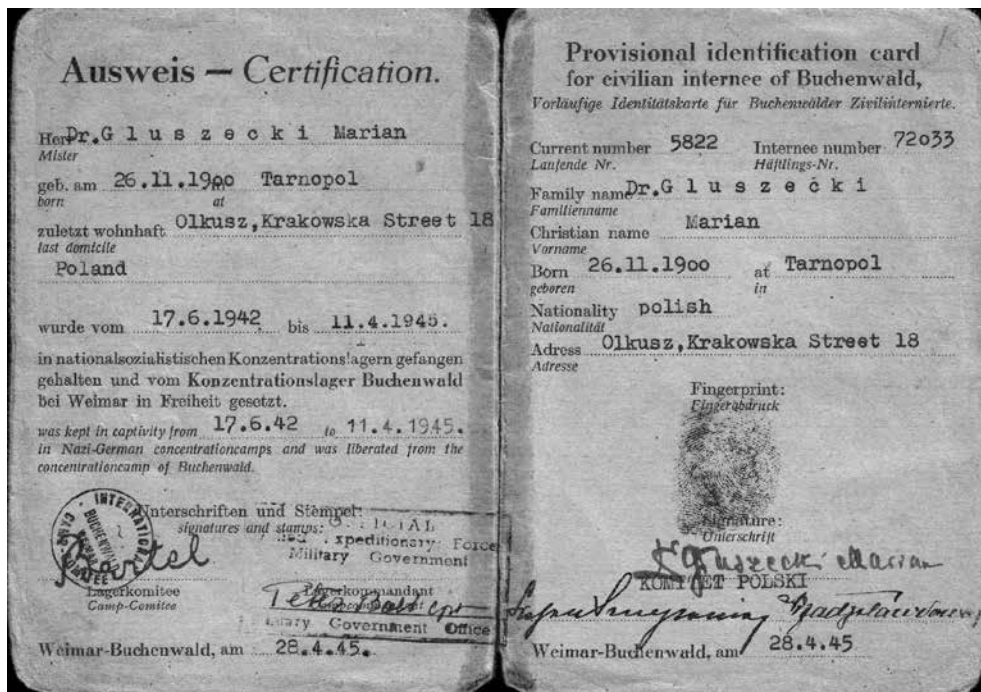 Ausweis — Certification.
Herr Dr.G l u s z e c k i Marian
Mister
geb. am 26.11.1900 Tarnopol
born at
zuletzt wohnhaft Olkusz,Krakowska Street 18
last domicile
Poland
wurde vom 17.6.1942 bis 11.4.1945.
in nationalsozialistischen Konzentrationslagern gefangen
gehalten und vom Konzentrationslager Buchenwald
bei Weimar in Freiheit gesetzt.
was kept in captivity from 17.6.42 to 11.4.1945.
in Nazi-German concentrationcamps and was liberated from the
concentrationcamp of Buchenwald.
Unterschriften und Stempel:
signatures and stamps:
Expeditionary Force
Military Government
BUCHENWALD
Lagerkomitee Lagerkommandant
Camp-Comitee
Government Office
Weimar-Buchenwald, am 28.4.45.
Provisional identification card
for civilian internee of Buchenwald,
Vorläufige Identitätskarte für Buchenwälder Zivilinternierte.
Current number 5822 Internee number 72033
Laufende Nr. Häftlings-Nr.
Family name Dr.G l u s z e c k i
Familienname
Christian name Marian
Vorname
Born 26.11.1900 at Tarnopol
geboren in
Nationality polish
Nationalität
Adress Olkusz,Krakowska Street 18
Adresse
Fingerprint:
Fingerabdruck
Signature:
Unterschrift
Głuszecki Marian
KOMITET POLSKI
Weimar-Buchenwald, am 28.4.45